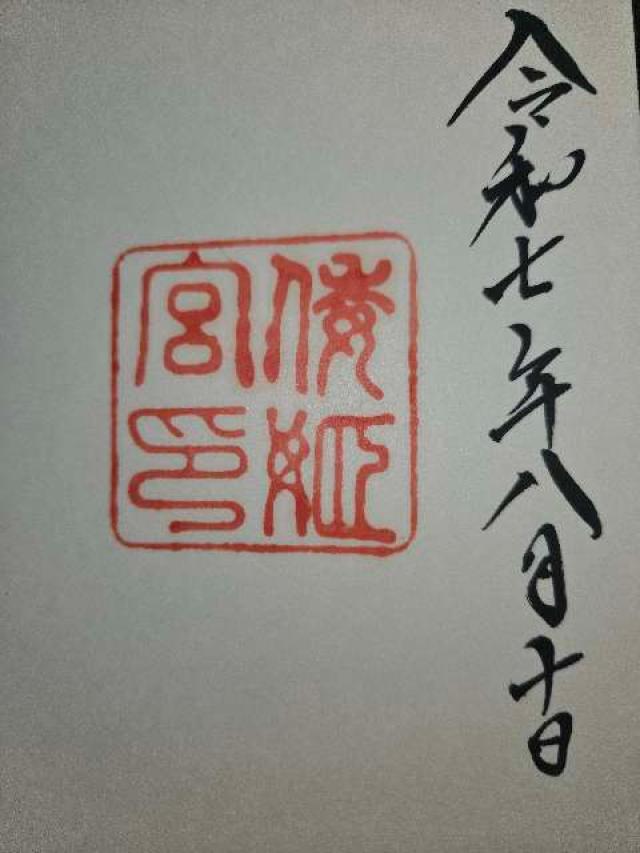 令和七年八月十日
倭姫
宮印